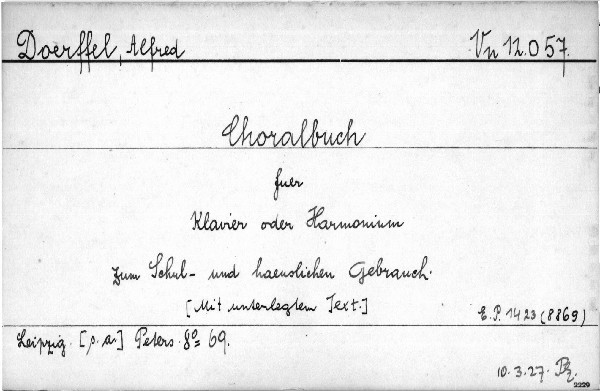 Doerffel, Alfred Vn 12.057.
Choralbuch
fuer
Klavier oder Harmonium
zum Schul- und haeuslichen Gebrauch.
[Mit unterlegtem Text.]
E.P. 1423 (8869)
Leipzig. [s.a.] Peters. 8º 69.
10.3.27.
2229